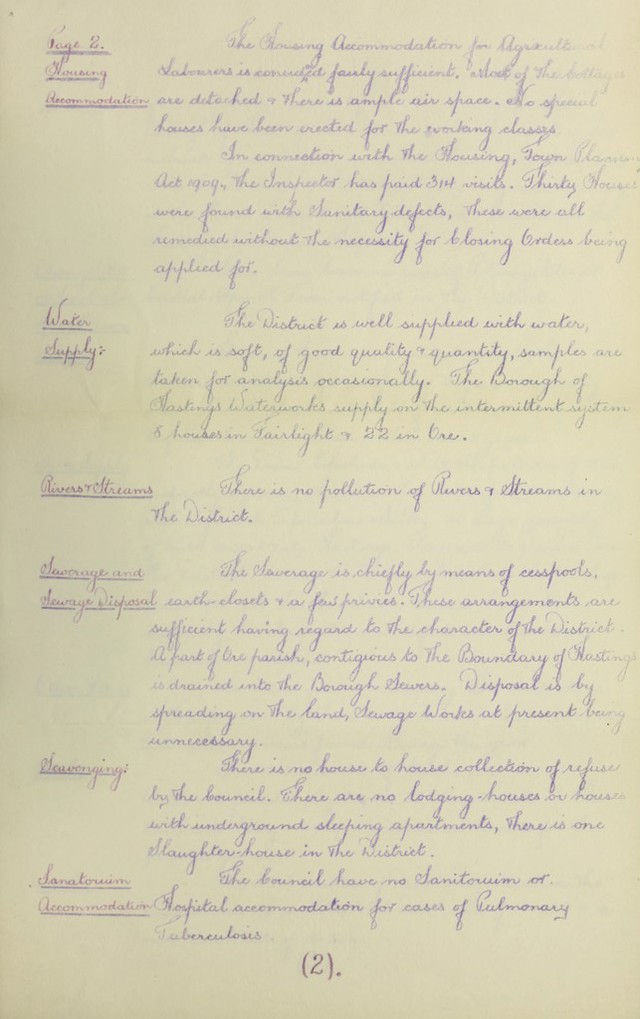 Page 2. The Housing Accommodation for Agricultural
Housing Labourers is concuded fairly sufficient. Most of the Cottages
Accommodation are detached & there is ample air space. No special
houses have been erected for the working classes
In connection with the Housing, Town Planning
Act 1909, the Inspector has paid 314 visits. Thirty Houses
were found with Sanitary defects, these were all
remedied without the necessity for Closing Orders being
applied for.
Water The District is well supplied with water,
Supply:- which is soft, of good quality & quantity, samples are
taken for analysis occasionally. The Borough of
Hastings Waterworks supply on the intermittent system
8 houses in Fairlight & 22 in Ore.
Rivers & Streams There is no pollution of Rivers & Streams in
the District.
Saverage and The Saverage is chiefly by means of cesspools,
Sewage Disposal earth-closets & a few privies. These arrangements are
sufficient having regard to the character of the District.
A part of Ore parish, contigious to the Boundary of Hastings
is drained into the Borough Sewers. Disposal is by
spreading on the land, Sewage Works at present being
unnecessary.
Scavenging: There is no house to house collection of refuse
by the Council. There are no lodging-houses or houses
with underground sleeping apartments, there is one
Slaughter-house in the District.
Sanatouium The Council have no Sanitouium or
Accommodation Hospital accommodation for cases of Pulmonary
Tuberculosis
(2).